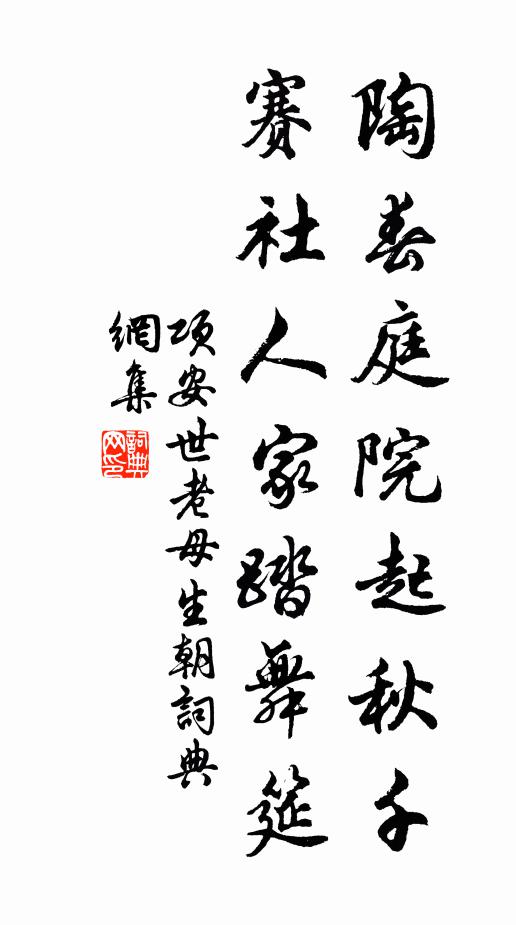 陶春庭院起秋千
賽社人家踏舞筵
項安世老母生朝詞典
網集
詞典
网印